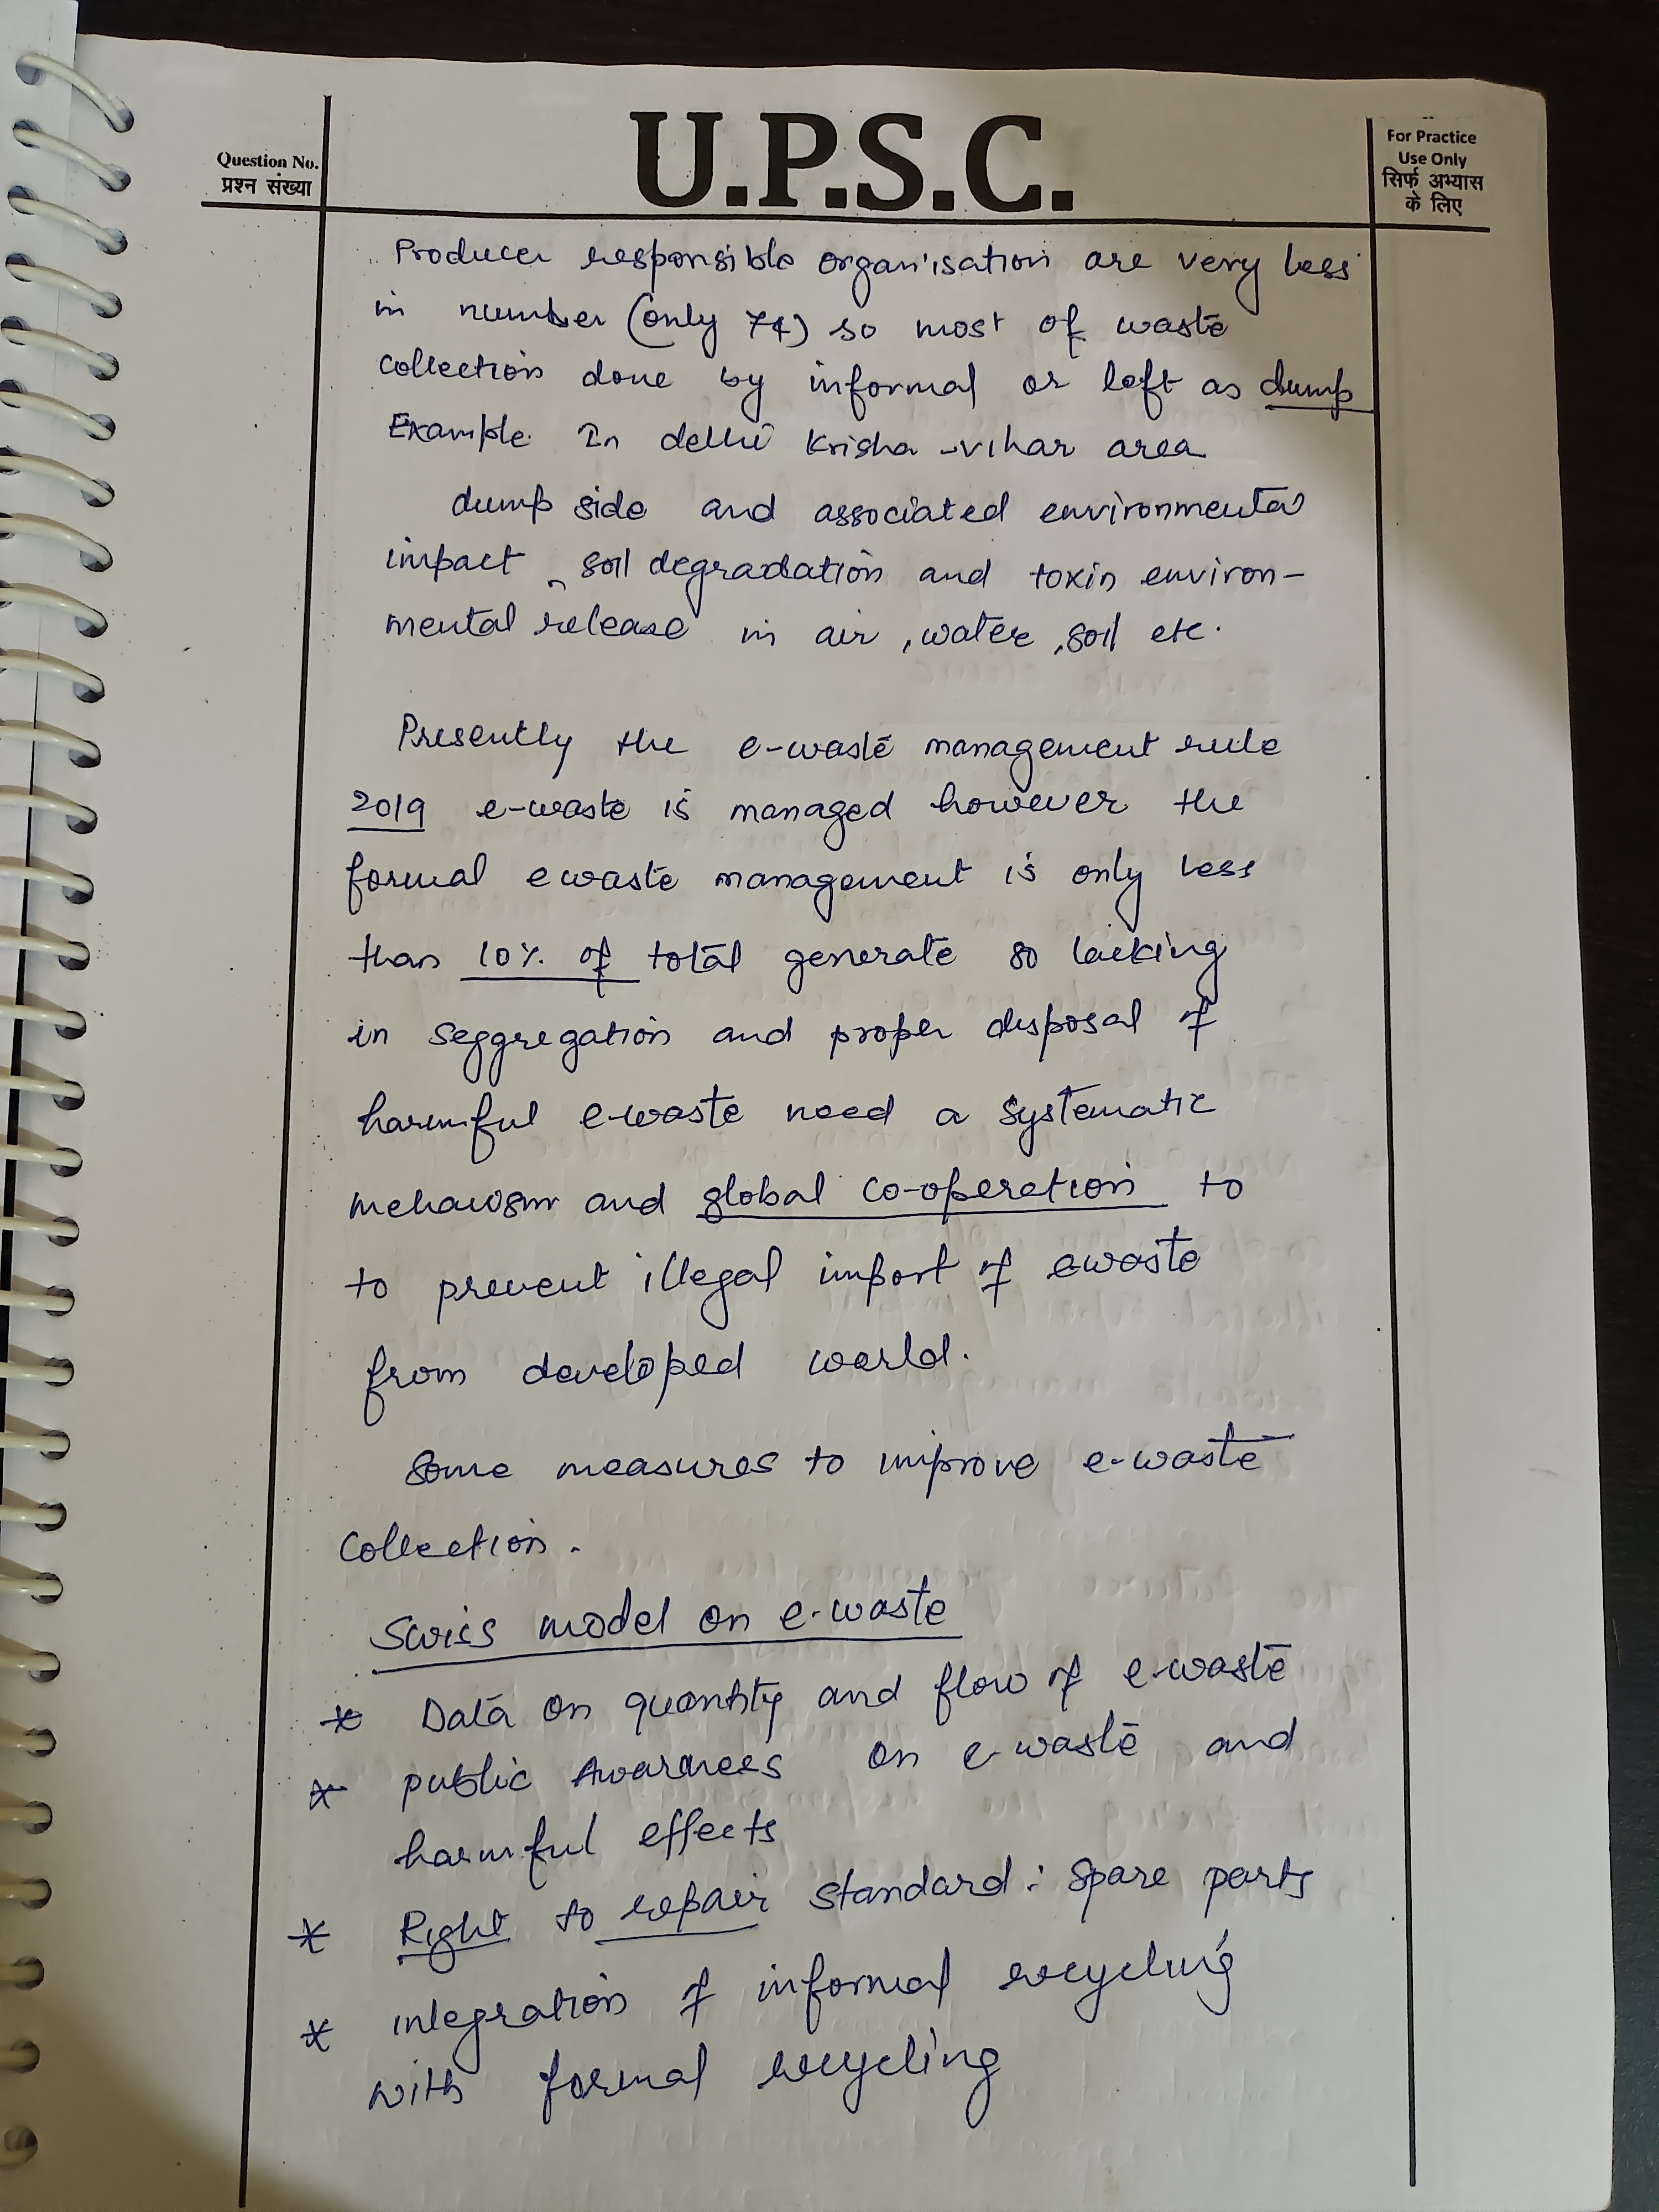 Question No.
प्रश्न संख्या
U.P.S.C.
For Practice
Use Only
सिर्फ अभ्यास
के लिए
Producer responsible organisation are very less
in number (only 74) so most of waste
collection done by informal or left as dump
Example. In delhi Krisha -vihar area
dump side and associated environmental
impact, soil degradation and toxin environ-
mental release in air, water, soil etc.
Presently the e-waste management rule
2019 e-waste is managed however the
formal ewaste management is only less
than 10% of total generate so lacking
in seggregation and proper disposal of
harmful e-waste need a systematic
mehawsm and global co-operation to
to prevent illegal import of ewaste
from developed world.
Some measures to improve e-waste
collection.
Swiss model on e-waste
* Data on quantity and flow of e-waste
* public Awarnees on e-waste and
harmful effects
* Right to repair standard: Spare parts
* integration of informal recycling
with formal recycling